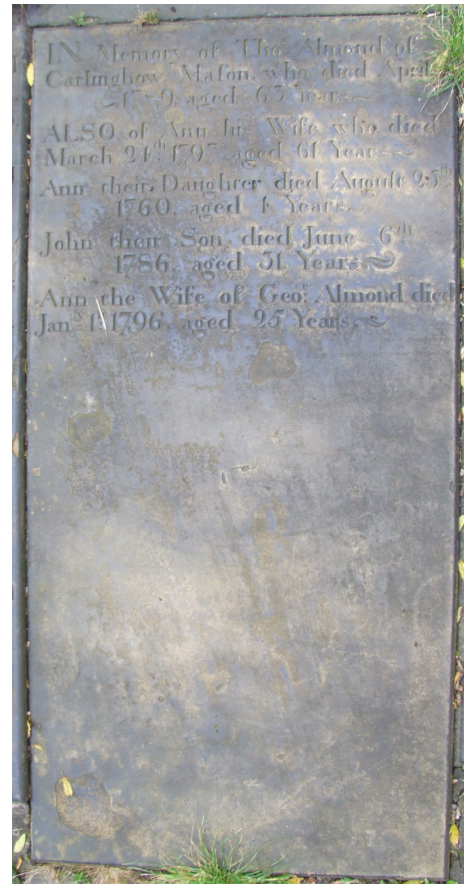 IN Memory of Tho.s Almond of
Carlinghow, Maſon, who died April
aged 63 Years
ALSO of Ann his Wife who died
March 24th 1797 aged 61 Years
Ann their Daughter died Auguſt 25th
1760, aged 4 Years.
John their Son died June 6th
1786, aged 31 Years
Ann the Wife of Geo: Almond died
1796, aged 25 Years